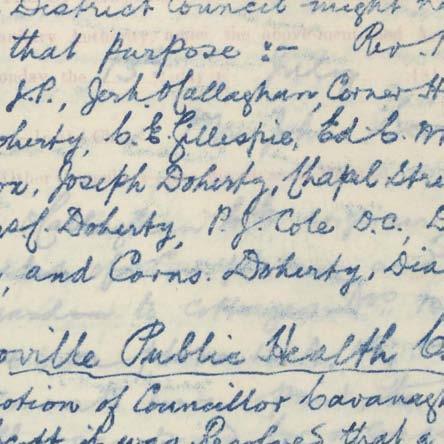 District Council might
that purpose :- Rev
J.P., Jerh. O'Callaghan, Corner H
oherty, C. E. Gillespie, Ed C. M
ox, Joseph Doherty, Chapel Stre
Doherty, P. J. Cole D.C.,
, and Corns. Doherty, Dia
oville Public Health C
otion of Councillor Cavanagh
it was Resolved that a